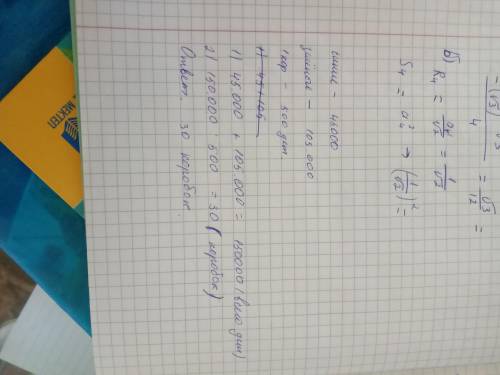 4
= √3/12 =
б) R₄ = a₄/√2 = 1/√2
S₄ = a₄² → (1/√2)² =
синие - 45000
- 105 000
1 кор - 500 дит
1) 45 000 + 105.000 = 150000 (
2) 150000 500 = 30 (коробок)
Ответ. 30 коробок.
МЕКТЕП